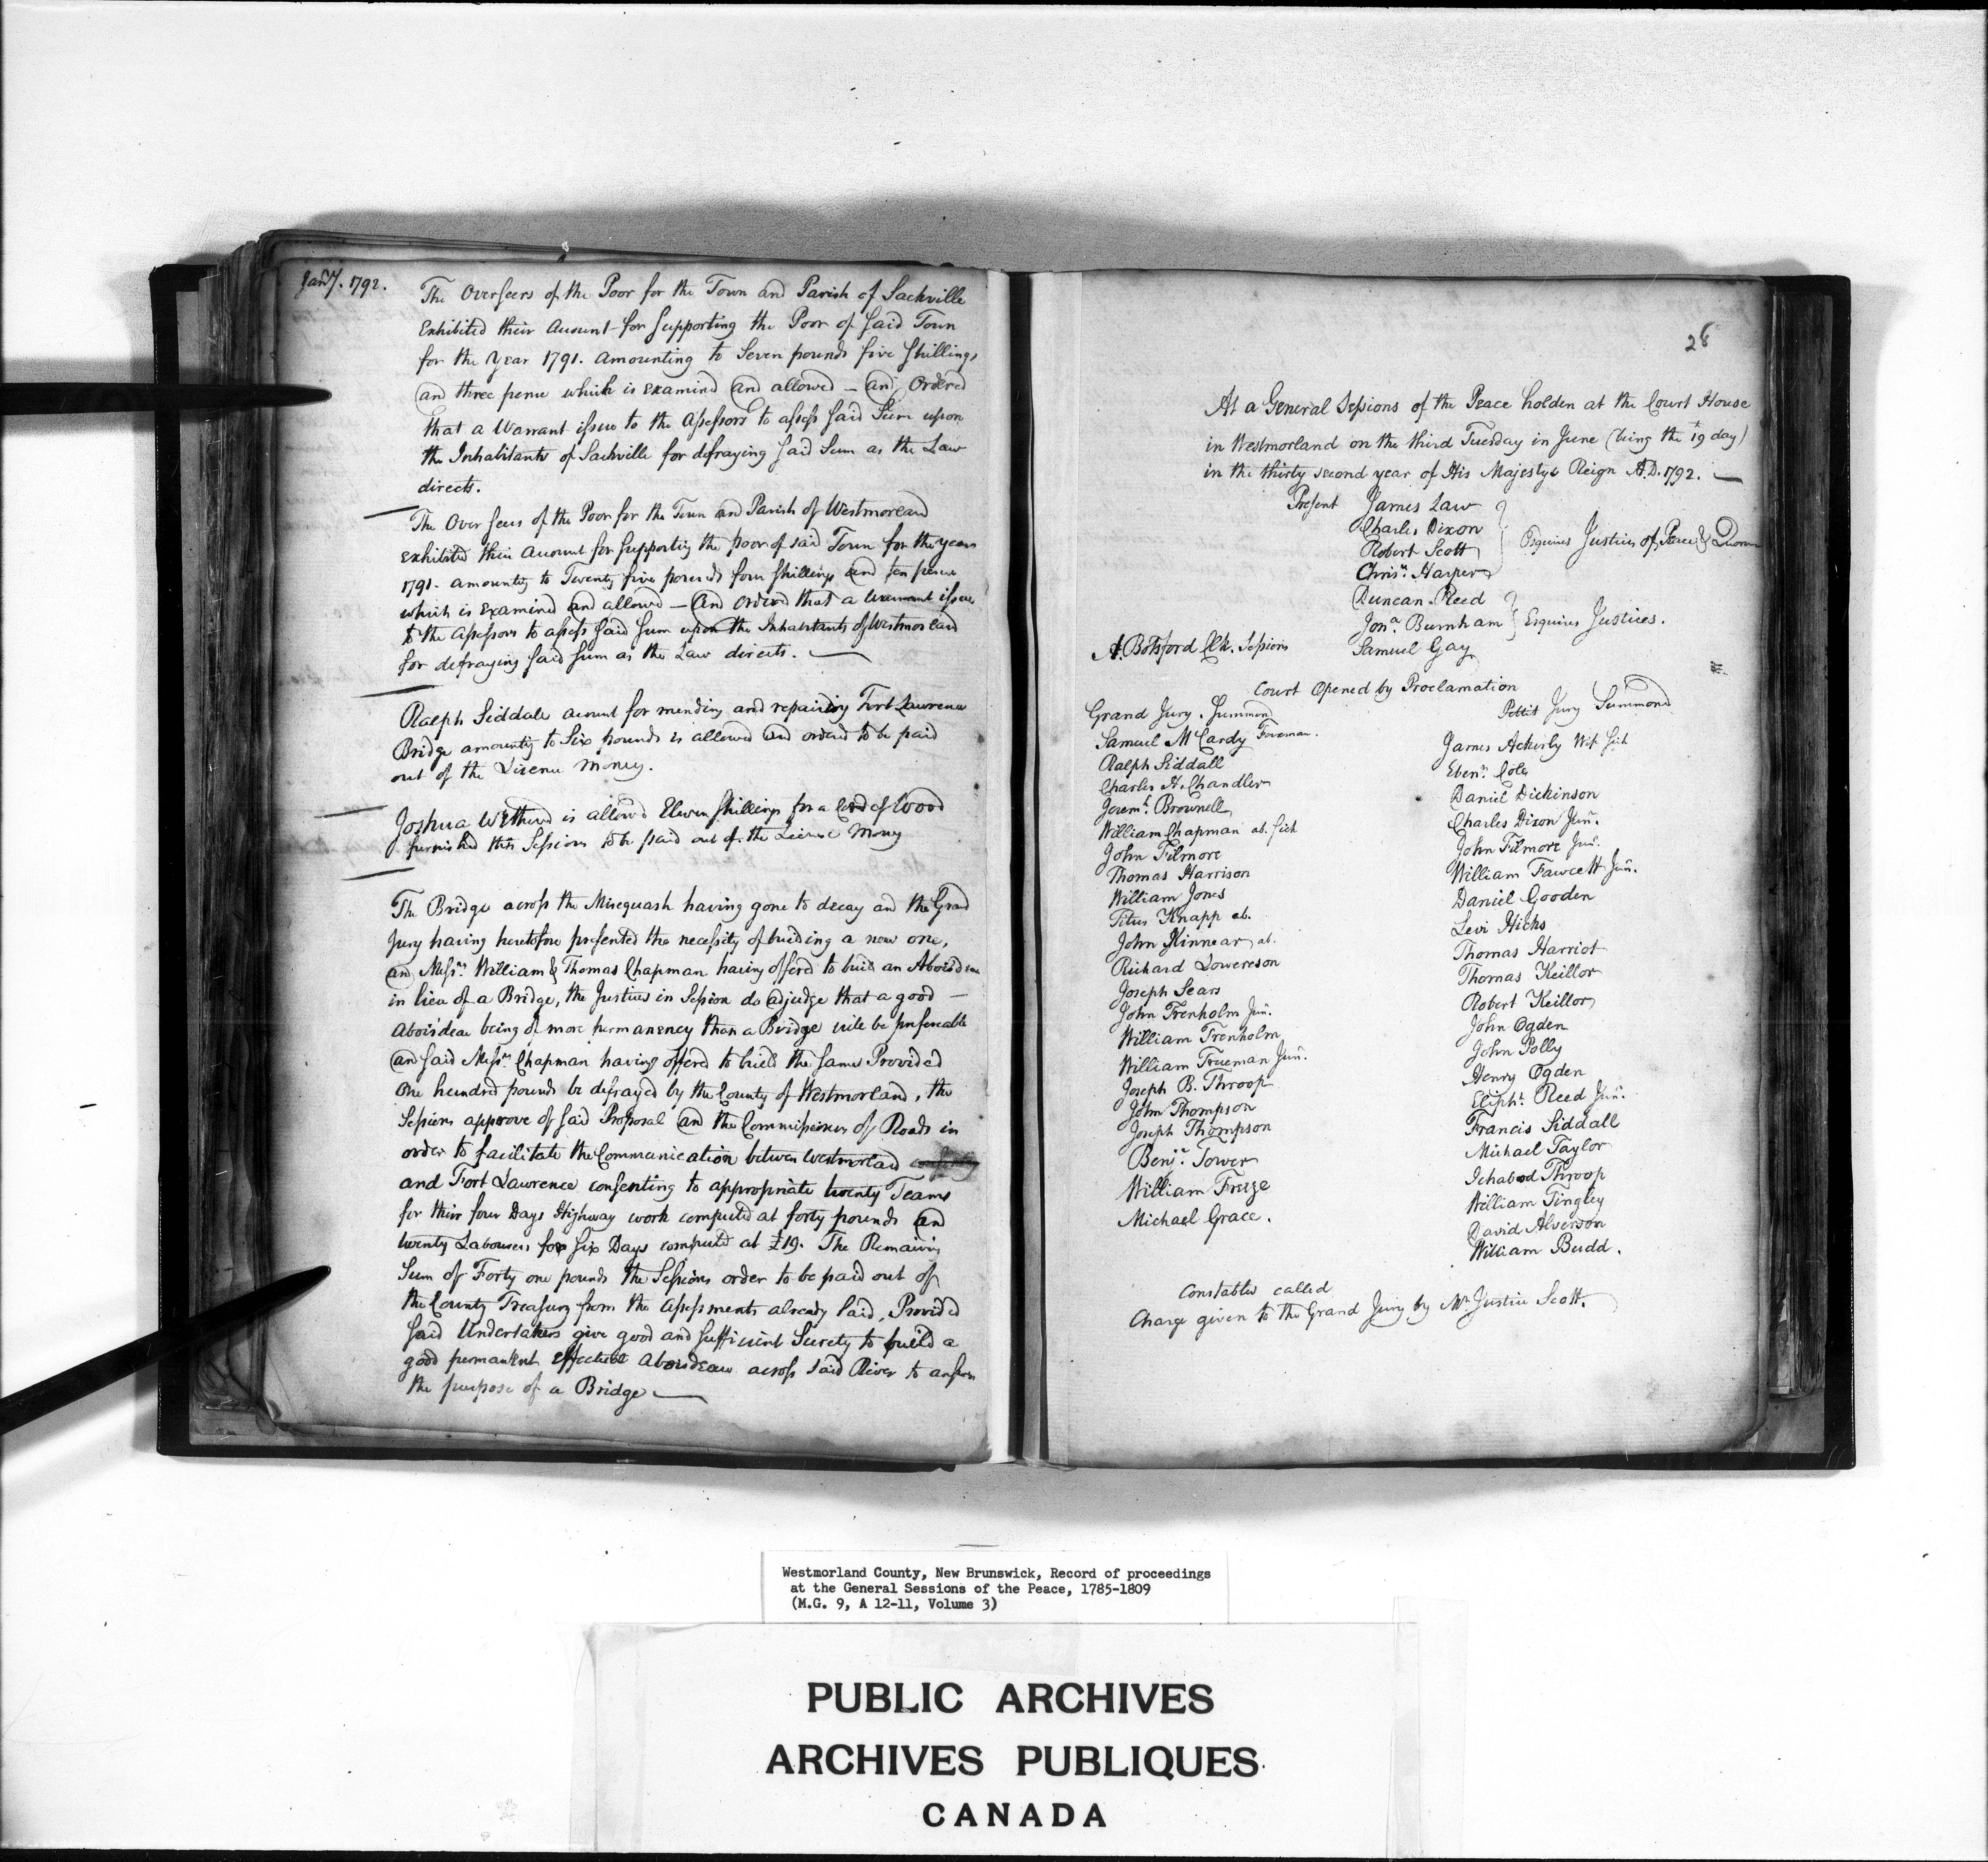 Jan'y. 1792.
The Overseers of the Poor for the Town and Parish of Sackville
Exhibited their Account for Supporting the Poor of said Town
for the Year 1791. Amounting to Seven pounds five Shillings
and three pence which is Examined and allowed – and Ordered
that a Warrant issue to the Assessors to assess said Sum upon
the Inhabitants of Sackville for defraying said Sum as the Law
directs.
The Overseers of the Poor for the Town and Parish of Westmorland
exhibited their Account for Supporting the poor of said Town for the year
1791. amounting to Twenty five pounds four Shillings and ten pence
which is Examined and allowed – and ordered that a Warrant issue
to the Assessors to assess said Sum upon the Inhabitants of Westmorland
for defraying said Sum as the Law directs.
Ralph Siddale account for mending and repairing Fort Lawrence
Bridge amounting to Six pounds is allowed and ordered to be paid
out of the Licence Money.
Joshua is allowed Eleven Shillings for a Cord of Wood
furnished this Sessions to be paid out of the Licence Money
The Bridge across the Misequash having gone to decay and the Grand
Jury having heretofore presented the necessity of building a new one,
and Messrs. William & Thomas Chapman having offered to build an Aboisdeau
in lieu of a Bridge, the Justices in Session do adjudge that a good –
Aboisdeau being of more permanency than a Bridge will be preferable
and said Messrs. Chapman having offered to build the same Provided
One hundred pounds be defrayed by the County of Westmorland, the
Sessions approve of said Proposal and the Commissioners of Roads in
order to facilitate the Communication between Westmorland
and Fort Lawrence consenting to appropriate twenty Teams
for their four Days Highway work computed at forty pounds and
twenty Labourers for Six Days computed at £19. The Remaining
Sum of Forty one pounds the Sessions order to be paid out of
the County Treasury from the Assessments already laid, Provided
said Undertakers give good and sufficient Surety to build a
good permanent effectual Aboisdeau across said River to answer
the purpose of a Bridge
28
At a General Sessions of the Peace holden at the Court House
in Westmorland on the third Tuesday in June (being the 19 day)
in the thirty second year of His Majestys Reign A.D. 1792.
Present James Law
Charles Dixon
Robert Scott
Chrisr. Harper
Esquires Justices of Peace & Quorum
Duncan Reed
Jona. Burnham
Samuel Gay
Esquires Justices.
A. Botsford Clk. Sessions
Court Opened by Proclamation
Grand Jury Summond
Samuel McCardy Foreman.
Ralph Siddall
Charles H. Chandler
Jeremh. Brownell
William Chapman ab. Sick
John Filmore
Thomas Harrison
William Jones
Titus Knapp ab.
John Kinnear ab.
Richard Lowereson
Joseph Sears
John Trenholm Jun.
William Trenholm
William Trueman Jun.
Joseph B. Throop
John Thompson
Joseph Thompson
Benjn. Tower
William Freeze
Michael Grace.
Pettit Jury Summond
James Ackerly Wife Sick
Ebenr. Cole
Daniel Dickinson
Charles Dixon Jun.
John Filmore Jun.
William Fawcett Jun.
Daniel Gooden
Levi Hicks
Thomas Harriot
Thomas Keillor
Robert Keillor
John Ogden
John Polly
Henry Ogden
Elipht. Reed Jun.
Francis Siddall
Michael Taylor
Ichabod Throop
William Tingley
David Alverson
William Budd.
Constables called
Charge given to the Grand Jury by Mr. Justice Scott.
Westmorland County, New Brunswick, Record of proceedings
at the General Sessions of the Peace, 1785-1809
(M.G. 9, A 12-11, Volume 3)
PUBLIC ARCHIVES
ARCHIVES PUBLIQUES
CANADA